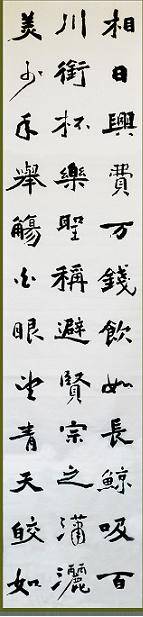 相日興費万錢飲如長鯨吸百
川銜杯樂聖稱避賢宗之瀟灑
美少年舉觴白眼望青天皎如